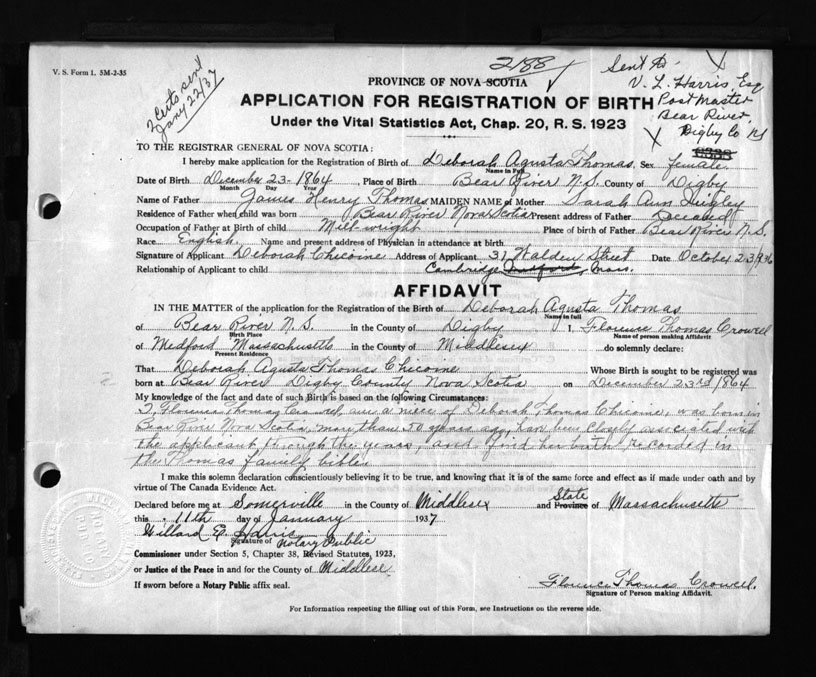 V. S. Form 1. 5M-2-35
2 Certs sent
Jany 22/37
2188
Sent to
V. L. Harris, Esq
Post Master
Bear River,
Digby Co NS
PROVINCE OF NOVA SCOTIA
APPLICATION FOR REGISTRATION OF BIRTH
Under the Vital Statistics Act, Chap. 20, R. S. 1923
TO THE REGISTRAR GENERAL OF NOVA SCOTIA:
I hereby make application for the Registration of Birth of Deborah Agusta Thomas, Sex female.
Name in Full
Date of Birth December 23 - 1864, Place of Birth Bear River N.S. County of Digby
Month Day Year
Name of Father James Henry Thomas MAIDEN NAME of Mother Sarah Ann
Residence of Father when child was born Bear River Nova Scotia Present address of Father Deceased
Occupation of Father at Birth of child Mill-wright Place of birth of Father Bear River N.S.
Race English Name and present address of Physician in attendance at birth
Signature of Applicant Deborah Chicoine Address of Applicant 31 Walden Street Date October 23/1936
Relationship of Applicant to child Cambridge, Mass.
AFFIDAVIT
IN THE MATTER of the application for the Registration of the Birth of Deborah Agusta Thomas
Name in full
of Bear River N.S. in the County of Digby I, Florence Thomas Crowell
Birth Place Name of person making Affidavit
of Medford Massachusetts in the County of Middlesex do solemnly declare:
Present Residence
That Deborah Agusta Thomas Chicoine Whose Birth is sought to be registered was
born at Bear River Digby County Nova Scotia on December 23rd 1864
My knowledge of the fact and date of such Birth is based on the following Circumstances:
I Florence Thomas Crowell, am a niece of Deborah Thomas Chicoine, was born in
Bear River Nova Scotia, more than 50 years ago, have been closely associated with
the applicant through the years, and find her birth recorded in
the Thomas family bible.
I make this solemn declaration conscientiously believing it to be true, and knowing that it is of the same force and effect as if made under oath and by
virtue of The Canada Evidence Act.
Declared before me at Somerville in the County of Middlesex and Province State of Massachusetts
this 11th day of January 1937
Willard E. Harris
Signature of Notary Public
Commissioner under Section 5, Chapter 38, Revised Statutes, 1923,
or Justice of the Peace in and for the County of Middlesex
If sworn before a Notary Public affix seal.
Florence Thomas Crowell.
Signature of Person making Affidavit.
For Information respecting the filling out of this Form, see Instructions on the reverse side.